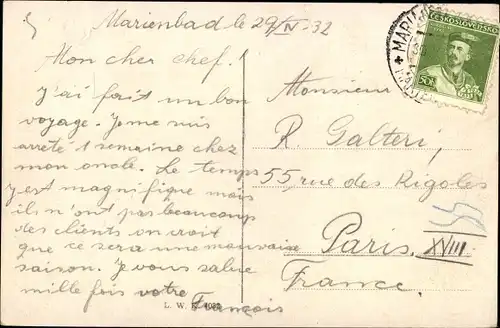 Marienbad le 29/IV 32
Mon cher chef!
J'ai fait un bon
voyage. Je me suis
arrêté 1 semaine chez
mon oncle. Le temps
y est magnifique mais
ils n'ont pas beaucoup
des clients on croit
que ce sera une mauvaise
saison. Je vous salue
mille fois votre
François
L. W. K.
ČESKOSLOVENSKO
50h
MARI
Monsieur
R. Galteri,
55, rue des Rigoles
Paris.
XVIII
France.